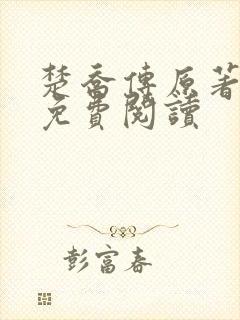 楚喬傳原著
免費閱讀
彭富春